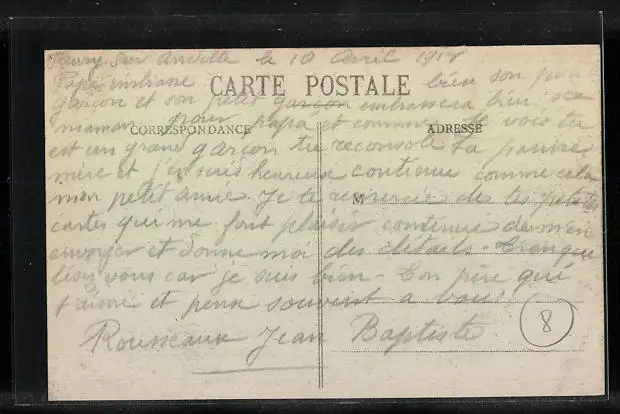 Fleury sur Andelle le 10 Avril 1917
Papa embrasse bien son petit
CARTE POSTALE
garçon et son petit garçon embrassera bien sa
maman pour papa et comme je vois tu
CORRESPONDANCE
ADRESSE
est un grand garçon tu reconsole ta pauvre
mère et j'en suis heureux continue comme cela
mon petit amie. Je te remercie de tes petites
M
cartes qui me font plaisir continue de m'en
envoyer et donne moi des détails. Tranqui
lisez vous car je suis bien. Ton père qui
t'aime et pense souvent a vous.
Rousseaux Jean Baptiste
8